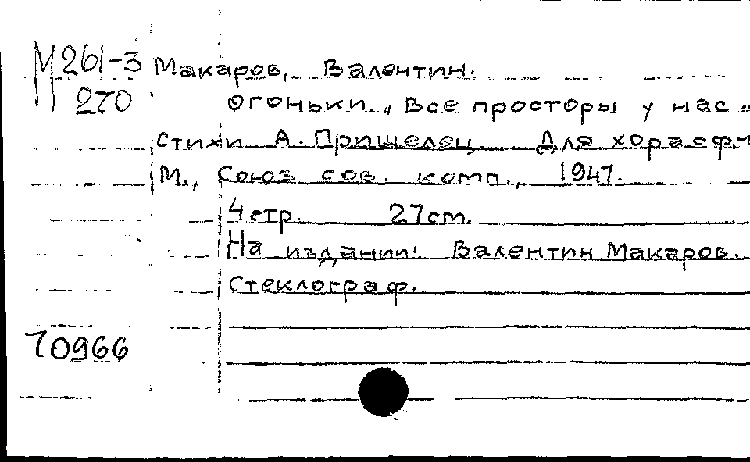 М261-3 Макаров, Валентин.
270 Огоньки. „Все просторы у нас..
стихи А. Пришелец. Для хора с ф-
М., Союз сов. комп., 1947.
4 стр. 27 cm.
На издании: Валентин Макаров.
Стеклограф.
70966